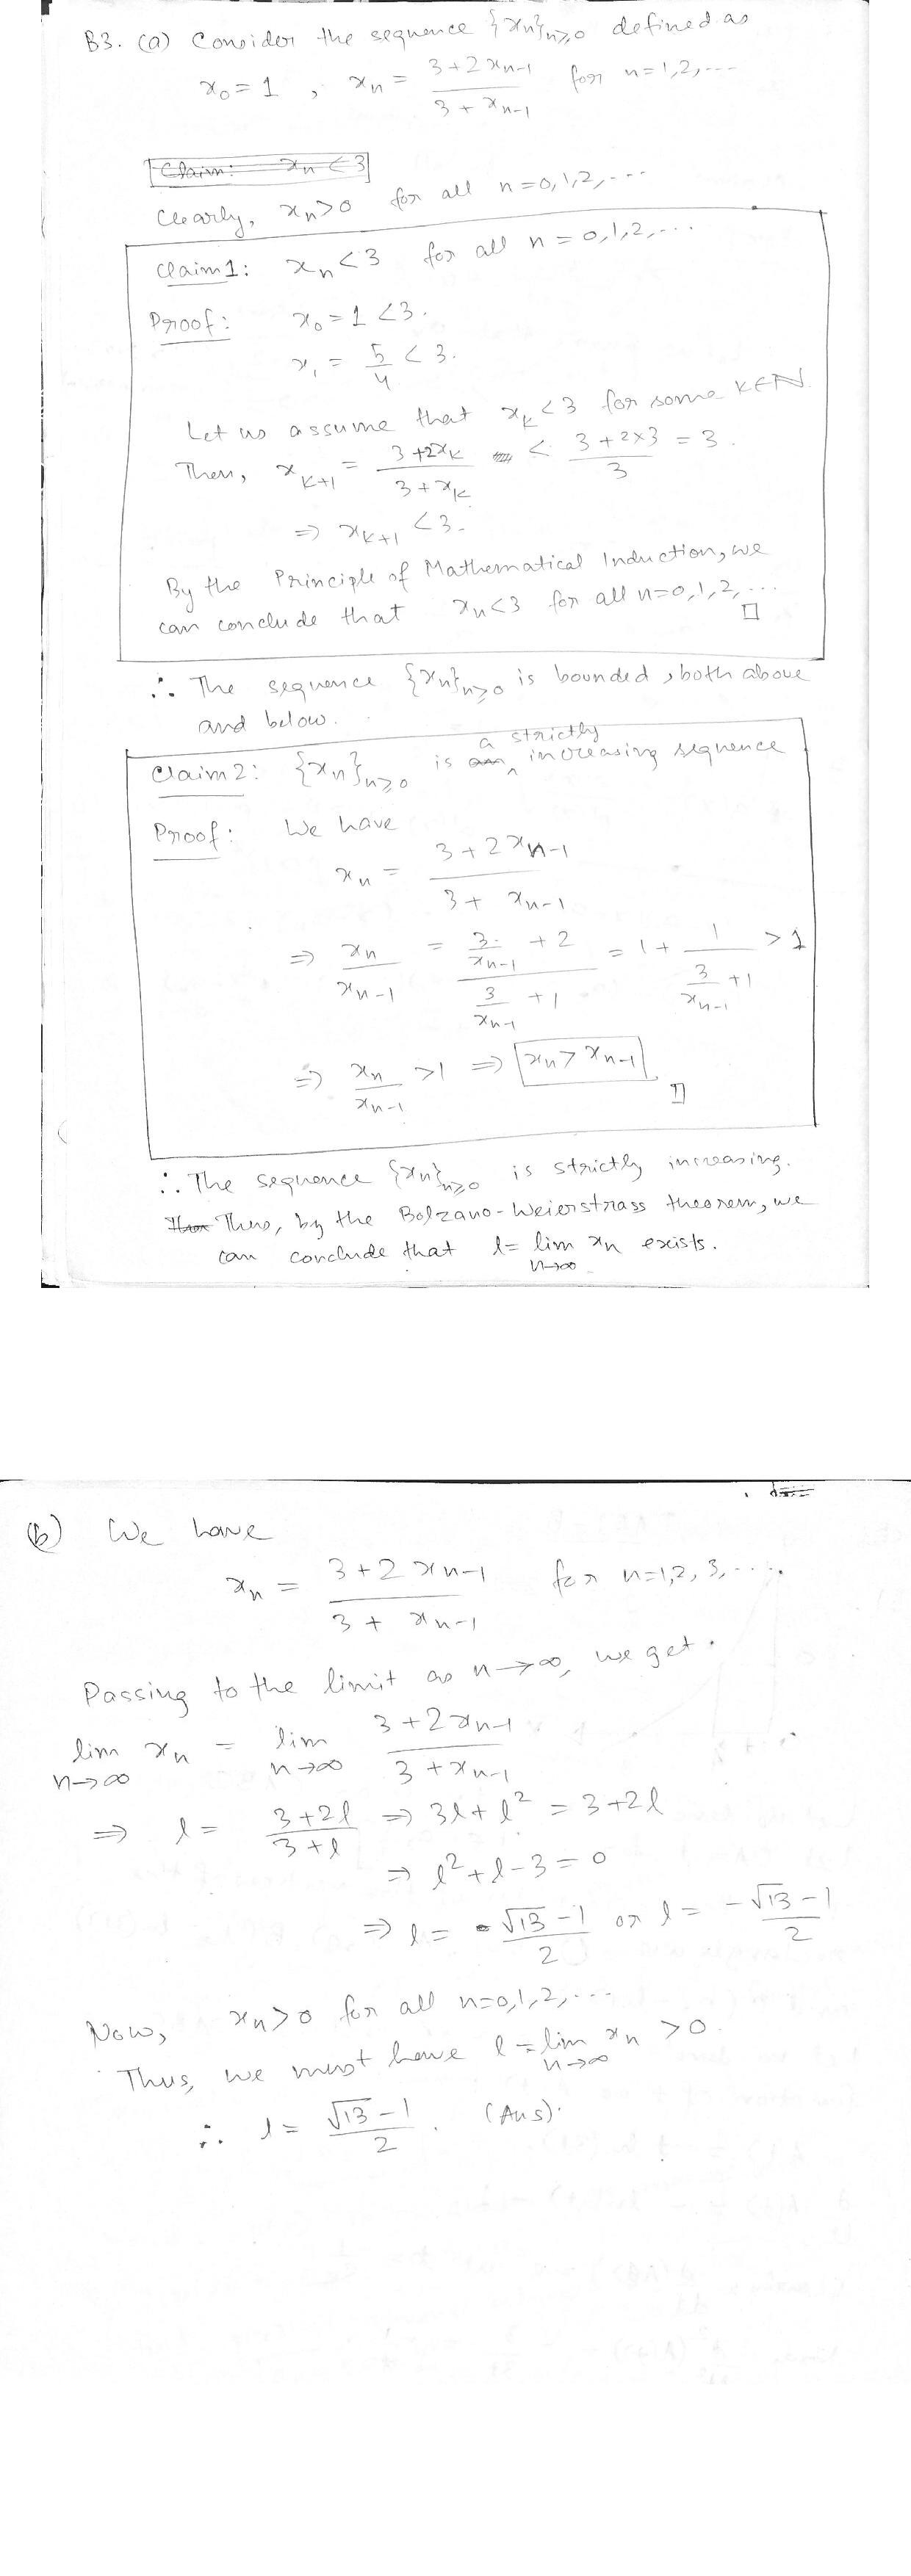 B3. (a) Consider the sequence {xn}n≥0 defined as
x0 = 1 , xn = (3 + 2xn-1)/(3 + xn-1) for n = 1, 2, ---
Claim: xn < 3
Clearly, xn > 0 for all n = 0, 1, 2, ---
Claim 1: xn < 3 for all n = 0, 1, 2, ...
Proof: x0 = 1 < 3.
x1 = 5/4 < 3.
Let us assume that xk < 3 for some k ∈ N.
Then, xk+1 = (3 + 2xk)/(3 + xk) < (3 + 2×3)/3 = 3.
⇒ xk+1 < 3.
By the Principle of Mathematical Induction, we
can conclude that xn < 3 for all n = 0, 1, 2, ... □
∴ The sequence {xn}n≥0 is bounded, both above
and below.
Claim 2: {xn}n≥0 is a strictly increasing sequence
Proof: We have
xn = (3 + 2xn-1)/(3 + xn-1)
⇒ xn/xn-1 = (3/xn-1 + 2)/(3/xn-1 + 1) = 1 + 1/(3/xn-1 + 1) > 1
⇒ xn/xn-1 > 1 ⇒ xn > xn-1 □
∴ The sequence {xn}n≥0 is strictly increasing.
Thus, by the Bolzano-Weierstrass theorem, we
can conclude that l = lim n→∞ xn exists.
(b) We have
xn = (3 + 2xn-1)/(3 + xn-1) for n = 1, 2, 3, ....
Passing to the limit as n→∞, we get.
lim n→∞ xn = lim n→∞ (3 + 2xn-1)/(3 + xn-1)
⇒ l = (3 + 2l)/(3 + l) ⇒ 3l + l² = 3 + 2l
⇒ l² + l - 3 = 0
⇒ l = (√13 - 1)/2 or l = (-√13 - 1)/2
Now, xn > 0 for all n = 0, 1, 2, ...
Thus, we must have l = lim n→∞ xn > 0.
∴ l = (√13 - 1)/2. (Ans).